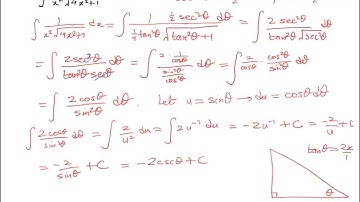 ∫ 1/(x²√(4x²+1)) dx = ∫ (1 · ½sec²θ dθ)/(¼tan²θ √(tan²θ+1)) = ∫ 2sec²θ/(tan²θ√sec²θ) dθ
= ∫ 2sec²θ/(tan²θ secθ) dθ = ∫ (2 · 1/cosθ)/(sin²θ/cos²θ) dθ = ∫ 2/cosθ · cos²θ/sin²θ dθ
= ∫ 2cosθ/sin²θ dθ. Let u = sinθ → du = cosθdθ
∫ 2cosθ/sin²θ dθ = ∫ 2/u² du = ∫ 2u⁻² du = -2u⁻¹ + C = -2/u + C
= -2/sinθ + C = -2cscθ + C
tanθ = 2x/1
θ